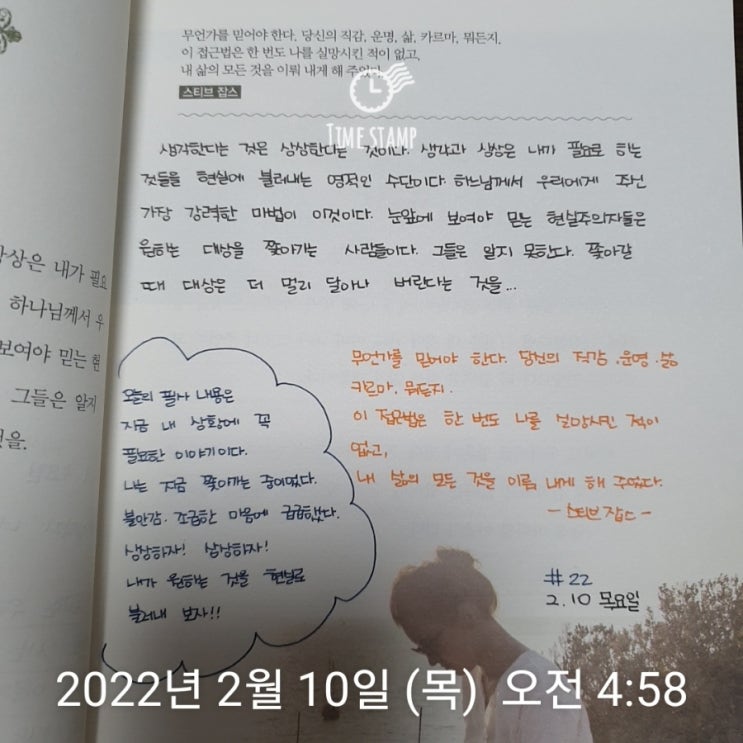 무언가를 믿어야 한다. 당신의 직감, 운명, 삶, 카르마, 뭐든지.
이 접근법은 한 번도 나를 실망시킨 적이 없고,
내 삶의 모든 것을 이뤄 내게 해 주었다.
스티브 잡스
TIME STAMP
생각한다는 것은 상상한다는 것이다. 생각과 상상은 내가 필요로 하는
것들을 현실에 불러내는 영적인 수단이다. 하느님께서 우리에게 주신
가장 강력한 마법이 이것이다. 눈앞에 보여야 믿는 현실주의자들은
원하는 대상을 쫓아가는 사람들이다. 그들은 알지 못한다. 쫓아갈
때 대상은 더 멀리 달아나 버린다는 것을...
상상은 내가 필요
하나님께서 우
보여야 믿는 현
그들은 알지
것을.
오늘의 필사 내용은
지금 내 상황에 꼭
필요한 이야기이다.
나는 지금 쫓아가는 중이었다.
불안감. 조급한 마음에 급급했다.
상상하자! 상상하자!
내가 원하는 것을 현실로
불러내 보자!!
무언가를 믿어야 한다. 당신의 직감. 운명. 삶
카르마. 뭐든지.
이 접근법은 한 번도 나를 실망시킨 적이
없고,
내 삶의 모든 것을 이뤄 내게 해 주었다.
-스티브 잡스-
#22
2. 10 목요일
2022년 2월 10일 (목) 오전 4:58